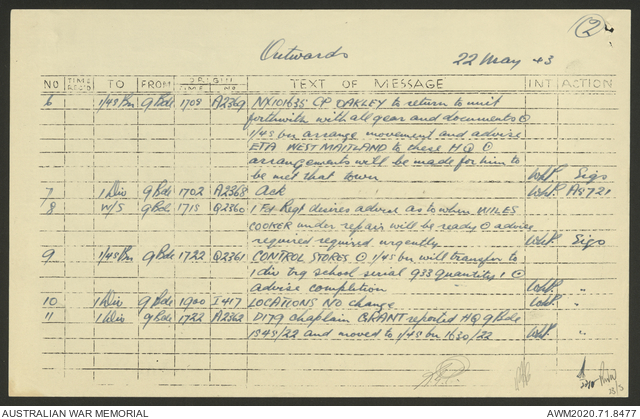 2
Outwards 22 May 43
NO TIME REC'D TO FROM ORIGIN TIME NO TEXT OF MESSAGE INT ACTION
6 1/48 Bn 9 Bde 1708 A2369 NX101635 CP OAKLEY to return to unit
forthwith with all gear and documents @
1/48 bn arrange movement and advise
ETA WEST MAITLAND to these HQ @
arrangements will be made for him to
be met that town Sigs
7 1 Div 9 Bde 1702 A2368 ack A9721
8 W/S 9 Bde 1715 Q2360 1 Fd Regt desires advice as to when WILES
COOKER under repair will be ready @ advice
required required urgently Sigs
9 1/48 Bn 9 Bde 1722 Q2361 CONTROL STORES @ 1/48 bn will transfer to
1 div trg school serial 933 quantity 1 @
advise completion "
10 1 Div 9 Bde 1900 I417 LOCATIONS NO change "
11 1 Div 9 Bde 1722 A2362 D179 chaplain GRANT reported HQ 9 Bde
1545/22 and moved to 1/48 bn 1630/22 "
AUSTRALIAN WAR MEMORIAL AWM2020.71.8477